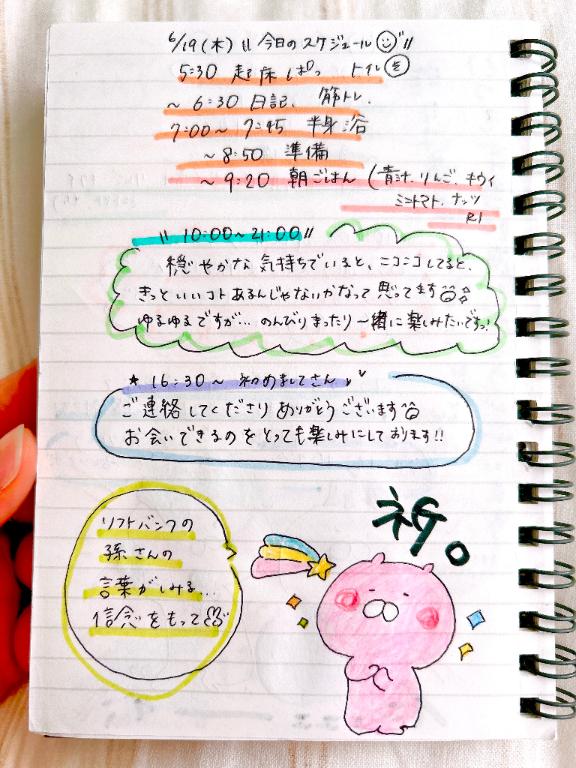 6/19(木) \\ 今日のスケジュール //
5:30 起床 ぱっ トイレ
~ 6:30 日記、筋トレ、
7:00~7:45 半身浴
~8:50 準備
~9:20 朝ごはん (青汁、りんご、キウイ
ミニトマト、ナッツ
R1
\\ 10:00~21:00 //
穏やかな気持ちでいると、ニコニコしてると、
きっといいコトあるんじゃないかなって思ってます
ゆるゆるですが… のんびりまったり一緒に楽しみたいですっ!
★ 16:30~ 初めましてさん
ご連絡してくださりありがとうございます
お会いできるのをとっても楽しみにしております!!
ソフトバンクの
孫さんの
言葉がしみる…
信念をもって
祈。